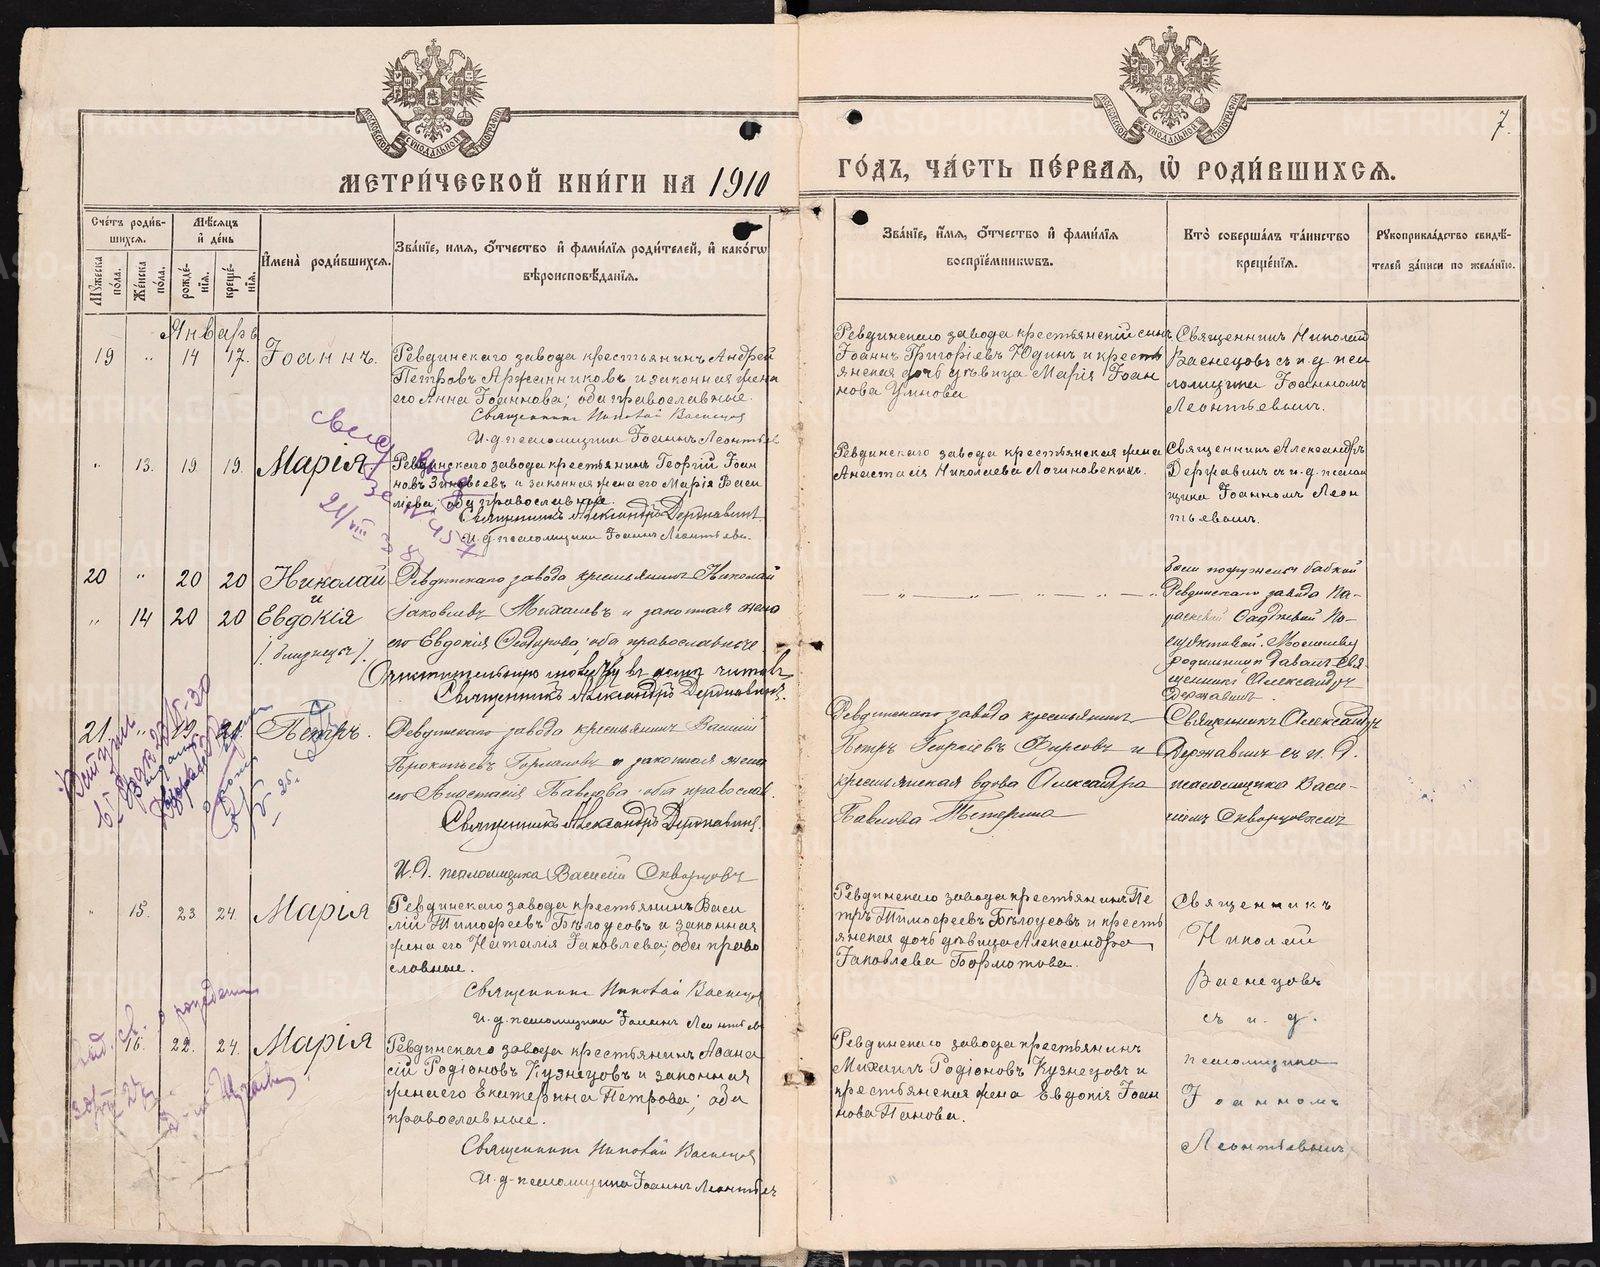 МЕТРИ́ЧЕСКОЙ КНИ́ГИ НА 1910
ГО́ДЪ, ЧА́СТЬ ПЕ́РВАЯ, Ѡ҆ РОДИ́ВШИХСѦ.
7.
Сче́тъ роди́в-
шихся.
Мѣсѧцъ
и҆ де́нь
Мꙋжеска
по́ла.
Же́нска
по́ла.
рожде́-
нїѧ.
креще́-
нїѧ.
И҆мена̀ роди́вшихсѧ.
Зва́нїе, имѧ, ѻ҆́тчество и҆ фами́лїѧ роди́телей, и҆ како́гѡ
вѣроисповѣ́данїѧ.
Зва́нїе, и҆́мѧ, ѻ҆́тчество и҆ фами́лїѧ
воспрїе́мникѡвъ.
Кто̀ соверша́лъ та́инство
креще́нїѧ.
Рꙋкоприкла́дство свидѣ́-
телей за́писи по жела́нїю.
Январь
19 " 14 17. Іоаннъ.
Ревдинскаго завода крестьянинъ Андрей
Петровъ Аржанниковъ и законная жена
его Анна Іоаннова; оба православные.
Священникъ Николай Васнецов
И. д. псаломщика Іоаннъ Леонтьев
Ревдинскаго завода крестьянскій сынъ
Іоаннъ Григоріевъ Юдинъ и кресть
янская дочь дѣвица Марія Іоан
нова Умнова
Священникъ Николай
Васнецовъ съ и. д. пса
ломщика Іоанномъ
Леонтьевымъ.
" 13. 19. 19. Марія
Ревдинскаго завода крестьянинъ Георгій Іоан
новъ Зиновьевъ и законная жена его Марія Васи
ліева; оба православные.
Священникъ Александръ Державинъ
И. д. псаломщика Іоаннъ Леонтьевъ.
Ревдинскаго завода крестьянская жена
Анастасія Николаева Логиновскихъ.
Священникъ Александръ
Державинъ съ и. д. псалом
щика Іоанномъ Леон
тьевымъ.
20 " 20 20 Николай
и
" 14 20 20 Евдокія
/. близнецы /.
Ревдинскаго завода крестьянинъ Николай
Іаковлевъ Михалевъ и законная жена
его Евдокія Ѳедорова; оба православные
Очистительную молитву въ дому читалъ
Священникъ Александръ Державинъ.
были погружены бабкой
Ревдинскаго завода Па-
Молитву
родильницѣ давалъ Свя-
щенникъ Александръ
Державинъ
21. " 19. Петръ.
Ревдинскаго завода крестьянинъ Василій
Прокопьевъ и законная жена
его Анастасія Павлова оба православ.
Священникъ Александръ Державинъ.
И. д. псаломщика Василій Скворцовъ
Ревдинскаго завода крестьянинъ
Петръ Георгіевъ Фирсовъ и
крестьянская вдова Александра
Павлова Тетерина
Священникъ Александръ
Державинъ съ и. д.
псаломщика Васи-
ліемъ Скворцовымъ
" 15. 23 24. Марія
Ревдинскаго завода крестьянинъ Васи
лій Тимоѳеевъ Бѣлоусовъ и законная
жена его Наталія Іаковлева; оба право
славные.
Священникъ Николай Васнецов
И. д. псаломщика Іоаннъ Леонтьев
Ревдинскаго завода крестьянинъ Пе
тръ Тимоѳеевъ Бѣлоусовъ и кресть
янская дочь дѣвица Александра
Іаковлева Бормотова.
Священникъ
Николай
Васнецовъ
съ и. д.
псаломщика
Іоанномъ
Леонтьевымъ
16. 22. 24. Марія
Ревдинскаго завода крестьянинъ Аѳана
сій Родіоновъ Кузнецовъ и законная
жена его Екатерина Петрова; оба
православные.
Священникъ Николай Васнецов
И. д. псаломщика Іоаннъ Леонтьев
Ревдинскаго завода крестьянинъ
Михаилъ Родіоновъ Кузнецовъ и
крестьянская жена Евдокія Іоан
нова Панова.
METRIKI.GASO-URAL.RU